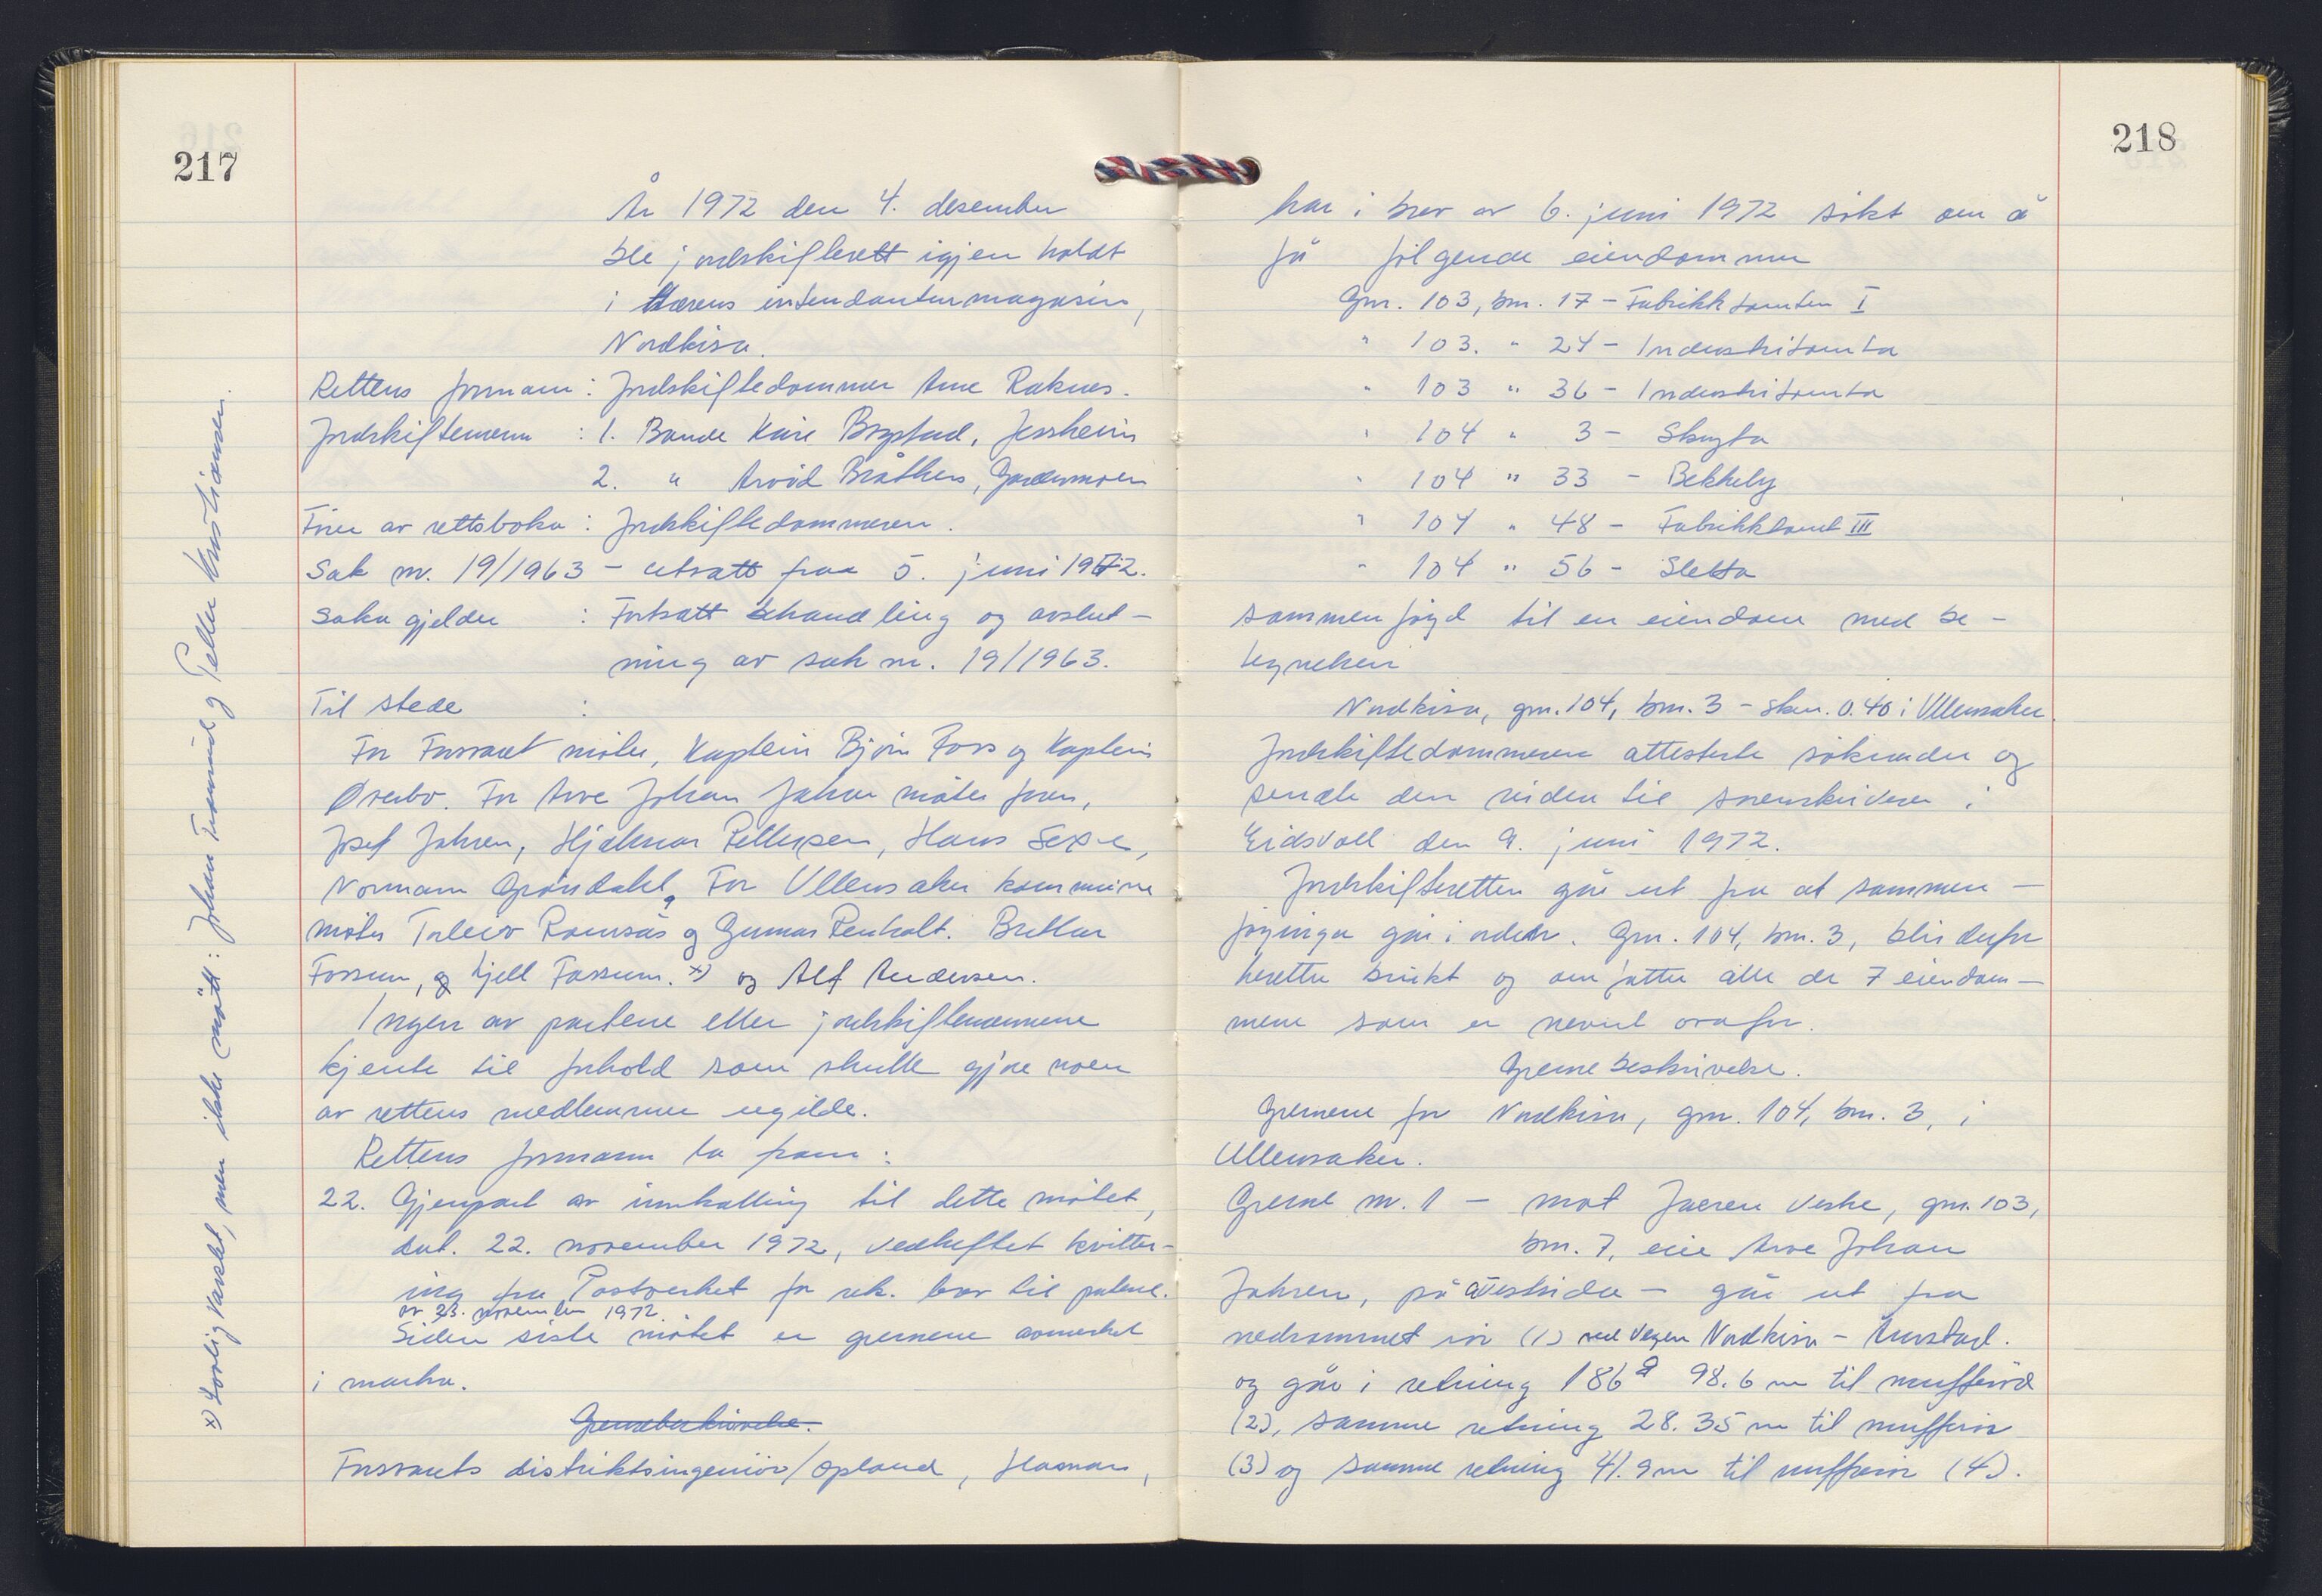 217
År 1972 den 4. desember
ble jordskifterett igjen holdt
i Hærens intendanturmagasin,
Nordkisa.
Rettens formann: Jordskiftedommer Arne Raknes.
Jordskiftemenn : 1. Bonde Kåre Jessheim
2. " Arvid Bråthen, Gardermoen
Fører av rettsboka: Jordskiftedommeren.
Sak nr. 19/1963 - utsatt fra 5. juni 1972.
Saka gjelder : Fortsatt behandling og avslut-
ning av sak nr. 19/1963.
Til stede :
For Forsvaret møter, Kaptein Bjørn Foss og Kaptein
Øverbø. For Arve Johan Jahren møter faren,
Josef Jahren, Hjalmar Pettersen, Hans
Normann Grøndahl, For Ullensaker kommune
møter Torleiv Ramsås og Gunnar Brettar
Fossum, og Kjell Fossum. x) og Alf Andersen.
Ingen av partene eller jordskiftemennene
kjente til forhold som skulle gjøre noen
av rettens medlemmer ugilde.
Rettens formann la fram:
22. Gjenpart av innkalling til dette møtet,
dat. 22. november 1972, vedheftet kvitter-
ing fra Postverket for rek. brev til partene.
av 23. november 1972.
Siden siste møtet er grensene avmerket
i marka.
Grensebeskrivelse.
Forsvarets distriktsingeniør/Opland, Hamar,
x) Lovlig varslet, men ikke møtt: Johan og Petter Kristiansen.
218
har i brev av 6. juni 1972 søkt om å
få følgende eiendommer
Gnr. 103, bnr. 17 - Fabrikktomten I
" 103. " 24 - Industritomta
" 103 " 36 - Industritomta
" 104 " 3 - Skogta
" 104 " 33 - Bekkely
" 104 " 48 - Fabrikktomt III
" 104 " 56 - Sletta
sammenføyd til en eiendom med be-
tegnelsen
Nordkisa, gnr. 104, bnr. 3 - skm. 0.40 i Ullensaker.
Jordskiftedommeren attesterte søknaden og
sendte den videre til sorenskriveren i
Eidsvoll den 9. juni 1972.
Jordskifteretten går ut fra at sammen-
føyinga går i orden. Gnr. 104, bnr. 3, blir derfor
heretter brukt og omfatter alle de 7 eiendom-
mene som er nevnt ovafor.
Grensebeskrivelse.
Grensene for Nordkisa, gnr. 104, bnr. 3, i
Ullensaker.
Grense nr. 1 - mot Jaeren vestre, gnr. 103,
bnr. 7, eier Arve Johan
Jahren, på vestsida - går ut fra
nedrammet rør (1) ved vegen Nordkisa -
og går i retning 186g 98.6 m til mufferør
(2), samme retning 28.35 m til mufferør
(3) og samme retning 41.9 m til mufferør (4).